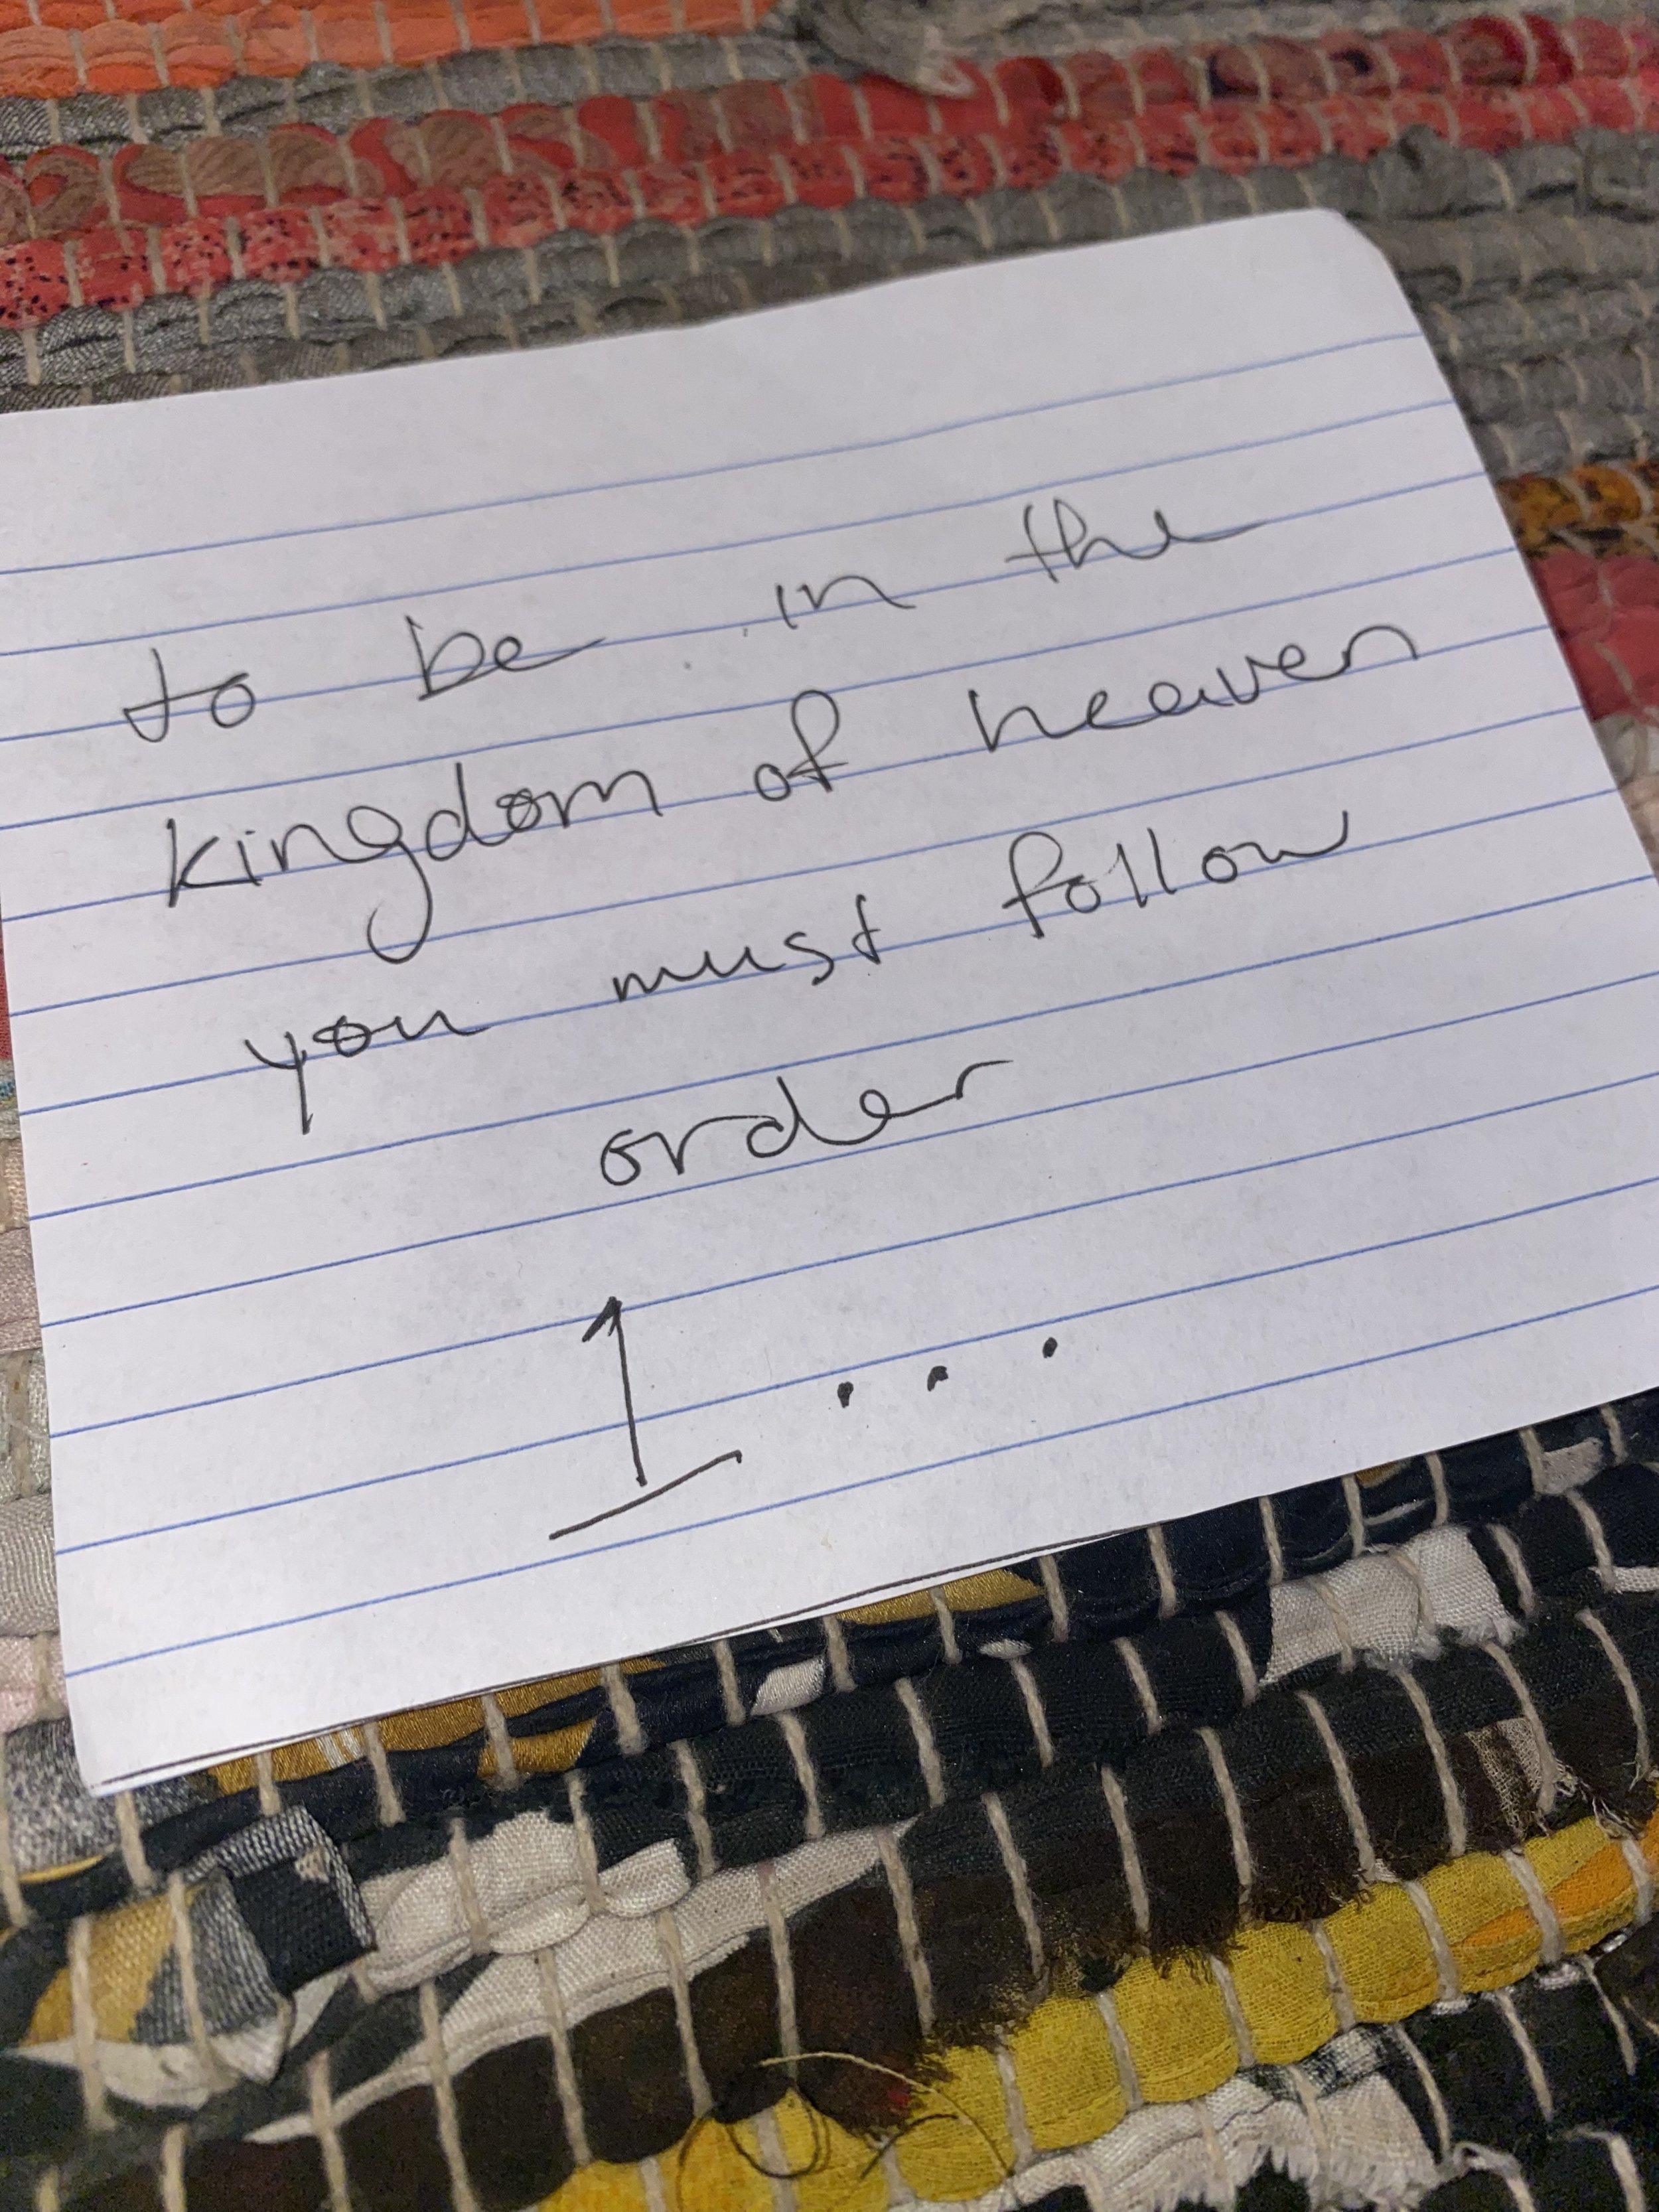 to be in the
kingdom of heaven
you must follow
order
1...